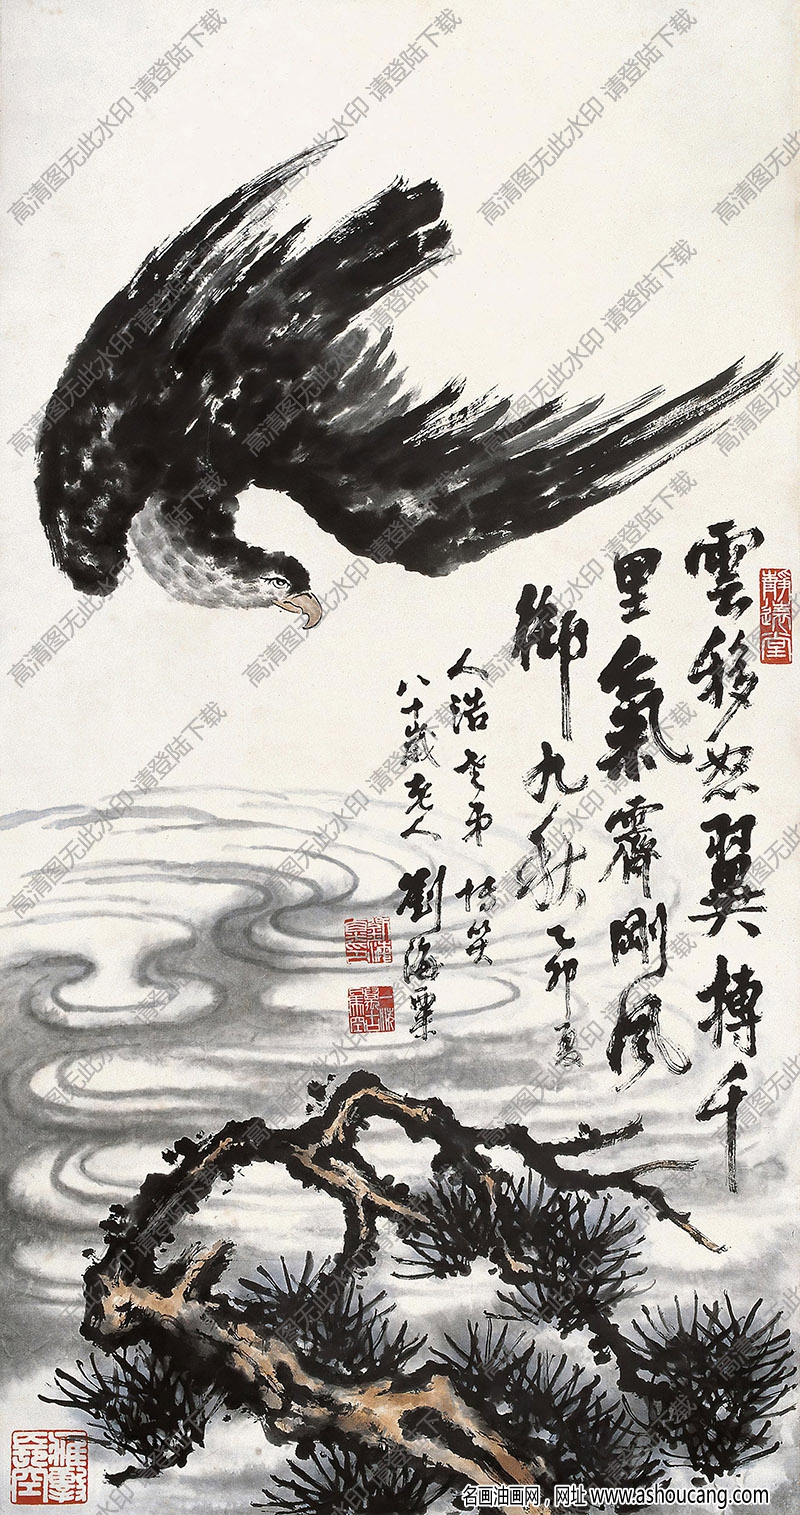 靜遠堂
雲移怒翼搏千
里氣霽剛風
御九秋 乙卯夏
人浩老弟 博笑
八十歲老人 劉海粟
高清图无此水印 请登陆下载
名画油画网，网址 www.ashoucang.com